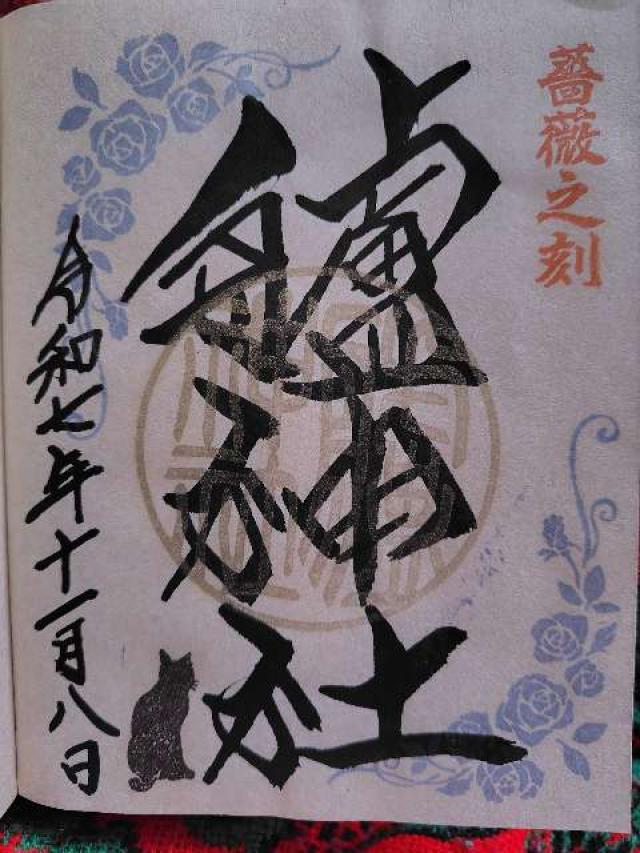 薔薇之刻
鑪神社
令和七年十一月八日